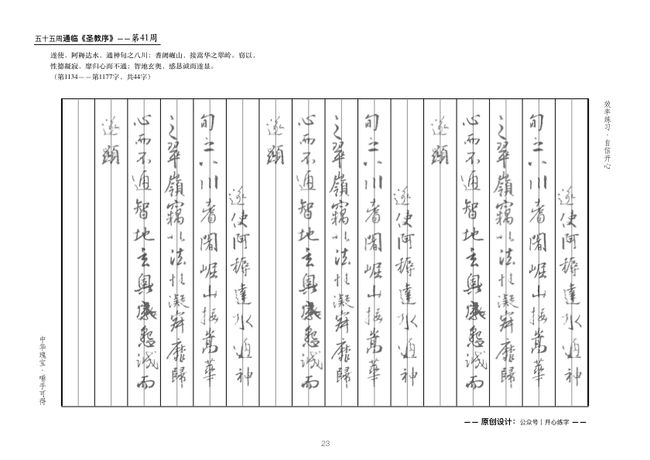 五十五周通临《圣教序》——第41周
遂使、阿耨达水、通神甸之八川；耆阇崛山、接嵩华之翠岭。窃以、
性德凝寂、靡归心而不通；智地玄奥、感恳诚而遂显。
（第1134——第1177字、共44字）
效率练习·自信开心
遂使阿耨達水通神
甸之八川耆闍崛山接嵩華
之翠嶺竊以法性凝寂靡歸
心而不通智地玄奧感懇誠而
遂顯
遂使阿耨達水通神
甸之八川耆闍崛山接嵩華
之翠嶺竊以法性凝寂靡歸
心而不通智地玄奧感懇誠而
遂顯
遂使阿耨達水通神
甸之八川耆闍崛山接嵩華
之翠嶺竊以法性凝寂靡歸
心而不通智地玄奧感懇誠而
遂顯
中华瑰宝·唾手可得
—— 原创设计：公众号｜开心练字 ——
23